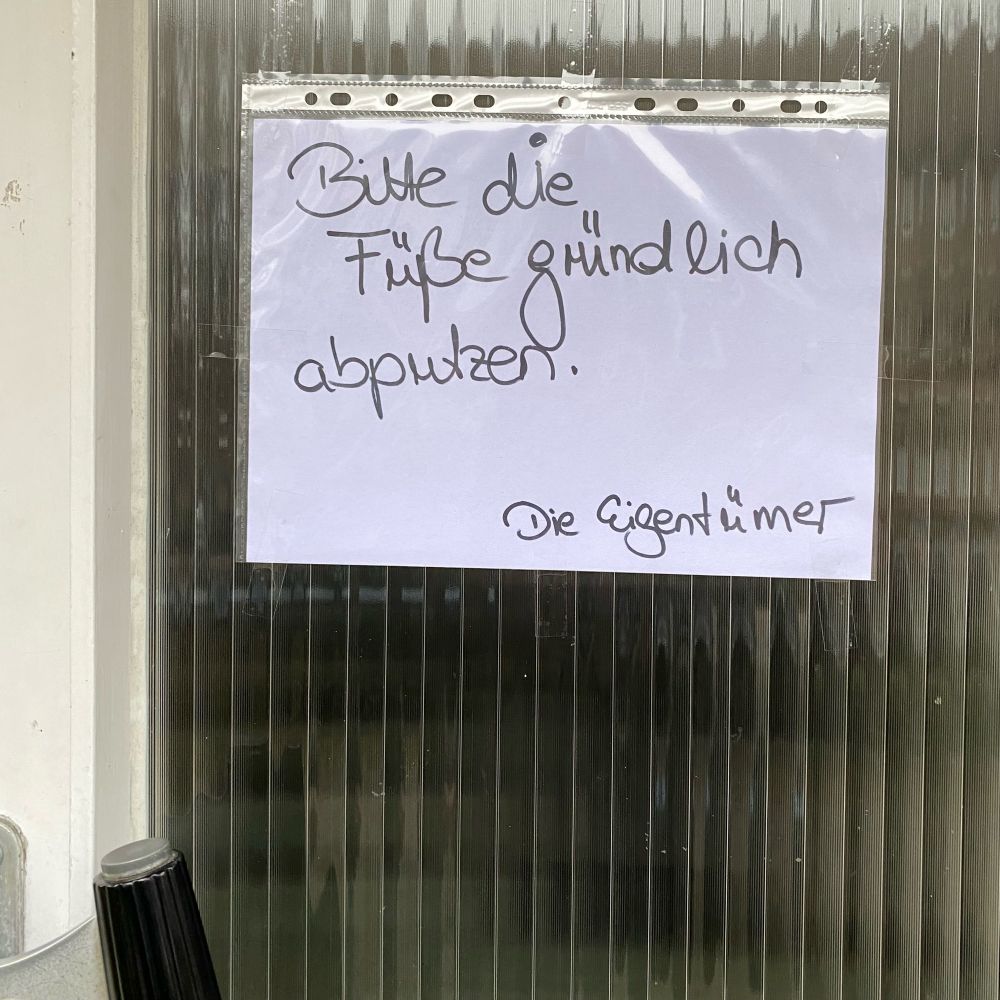 Bitte die
Füße gründlich
abputzen.
Die Eigentümer